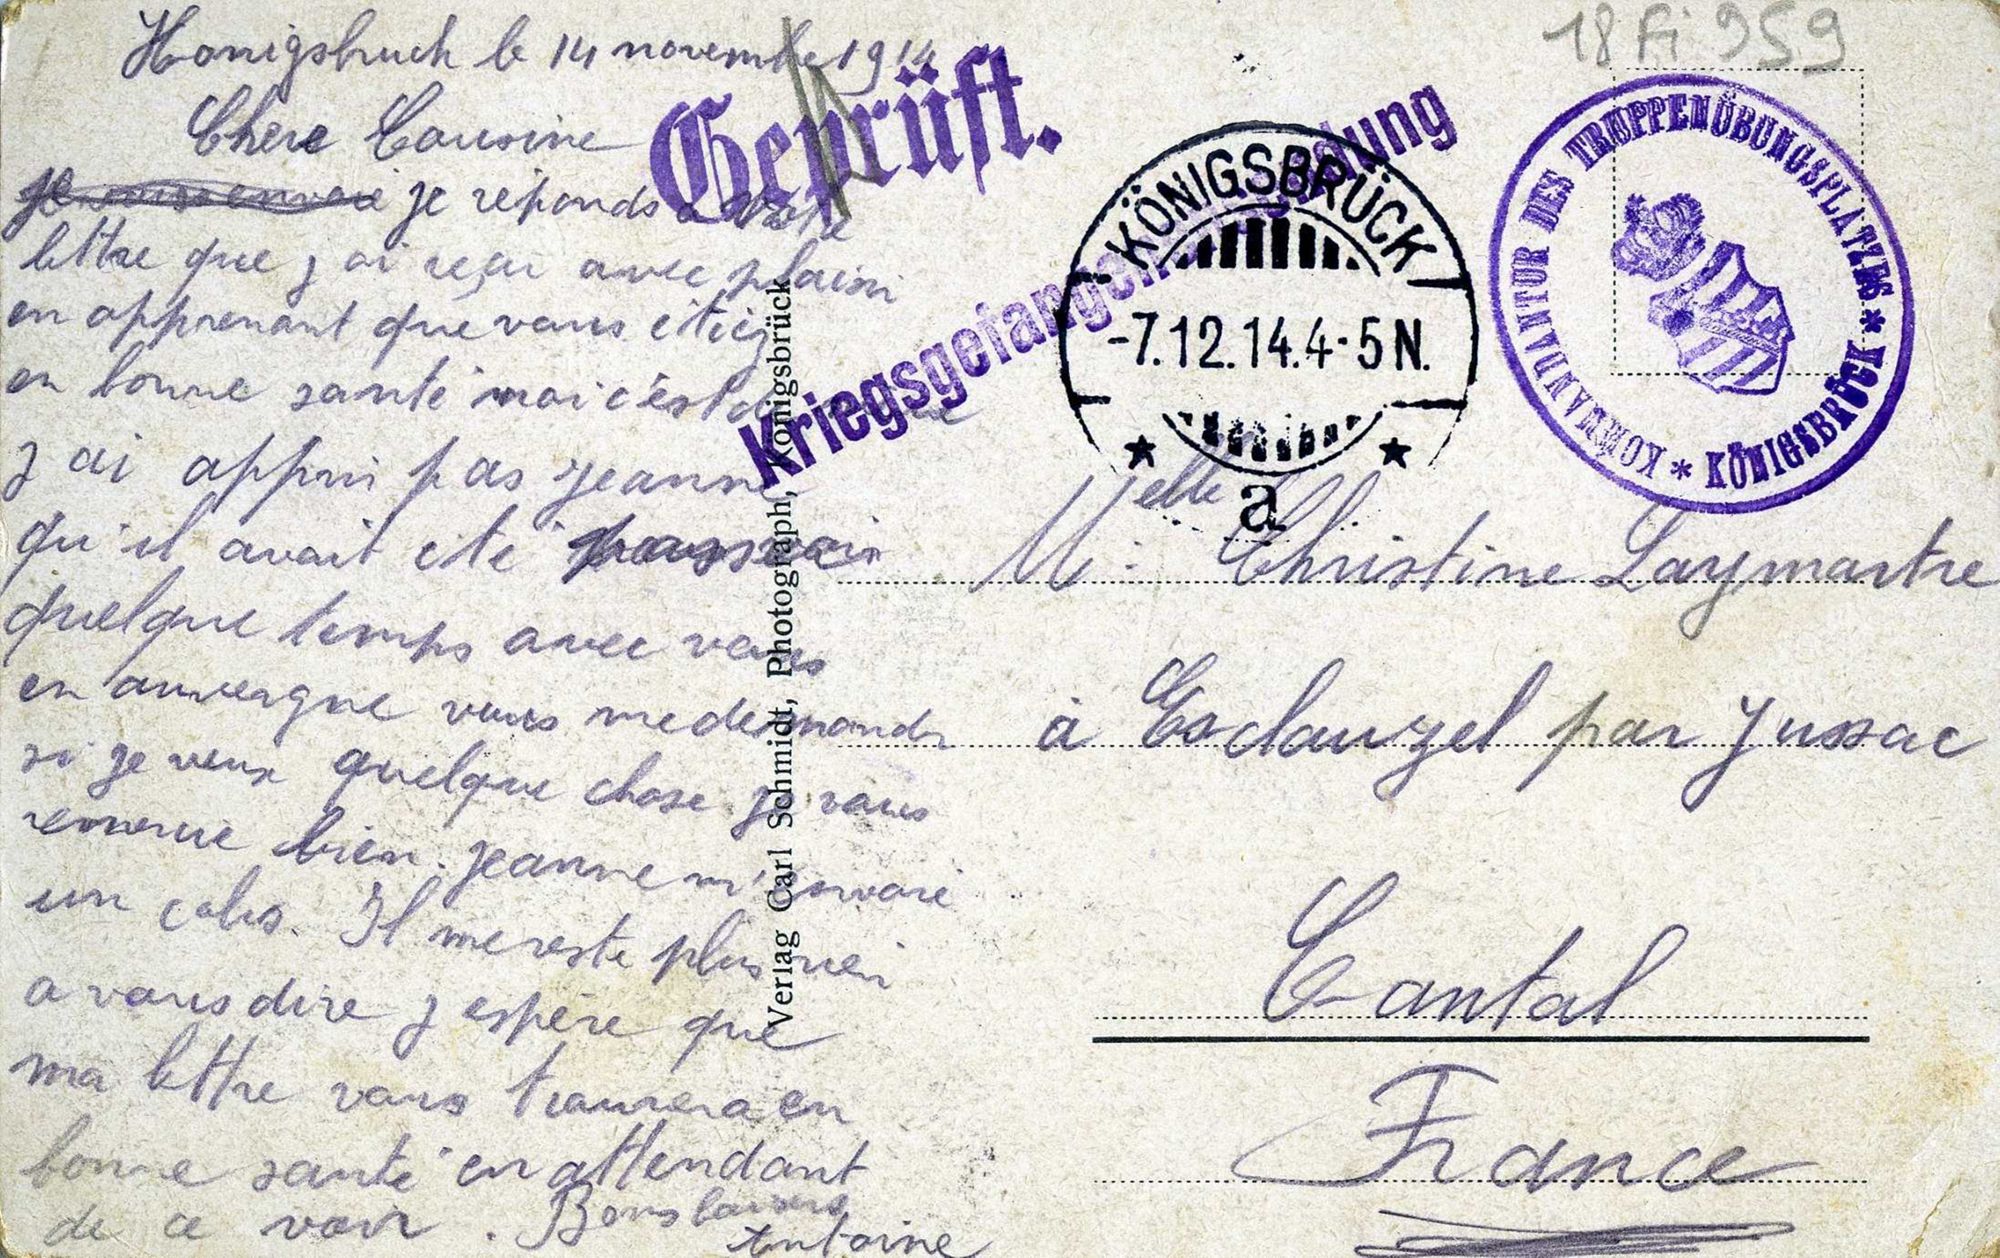 Honigsbruck le 14 novembre 1914
Chere Cousine
je vous envoie je réponds a votre
lettre que j ai reçu avec plaisir
en apprenant que vous étiez
en bonne santé moi c'est de même
j ai appri pas jeanne
qu'il avait eté passer
quelque temps avec vous
en auvergne vous me demmandr
si je veux quelque chose je vous
remercie bien. jeanne m'envoie
un colis. Il me reste plus rien
a vous dire j espère que
ma lettre vous trouvera en
bonne santé en attendant
de ce voir. Bons baisers
Antoine
Geprüft.
Kriegsgefangenensendung
KÖNIGSBRÜCK
-7.12.14.4-5N.
a
KOMMANDANTUR DES TRUPPENÜBUNGSPLATZES * KÖNIGSBRÜCK *
18 Fi 959
Verlag Carl Schmidt, Photograph, Königsbrück
Melle Christine Laymartre
à Esclauzel par Jussac
Cantal
France